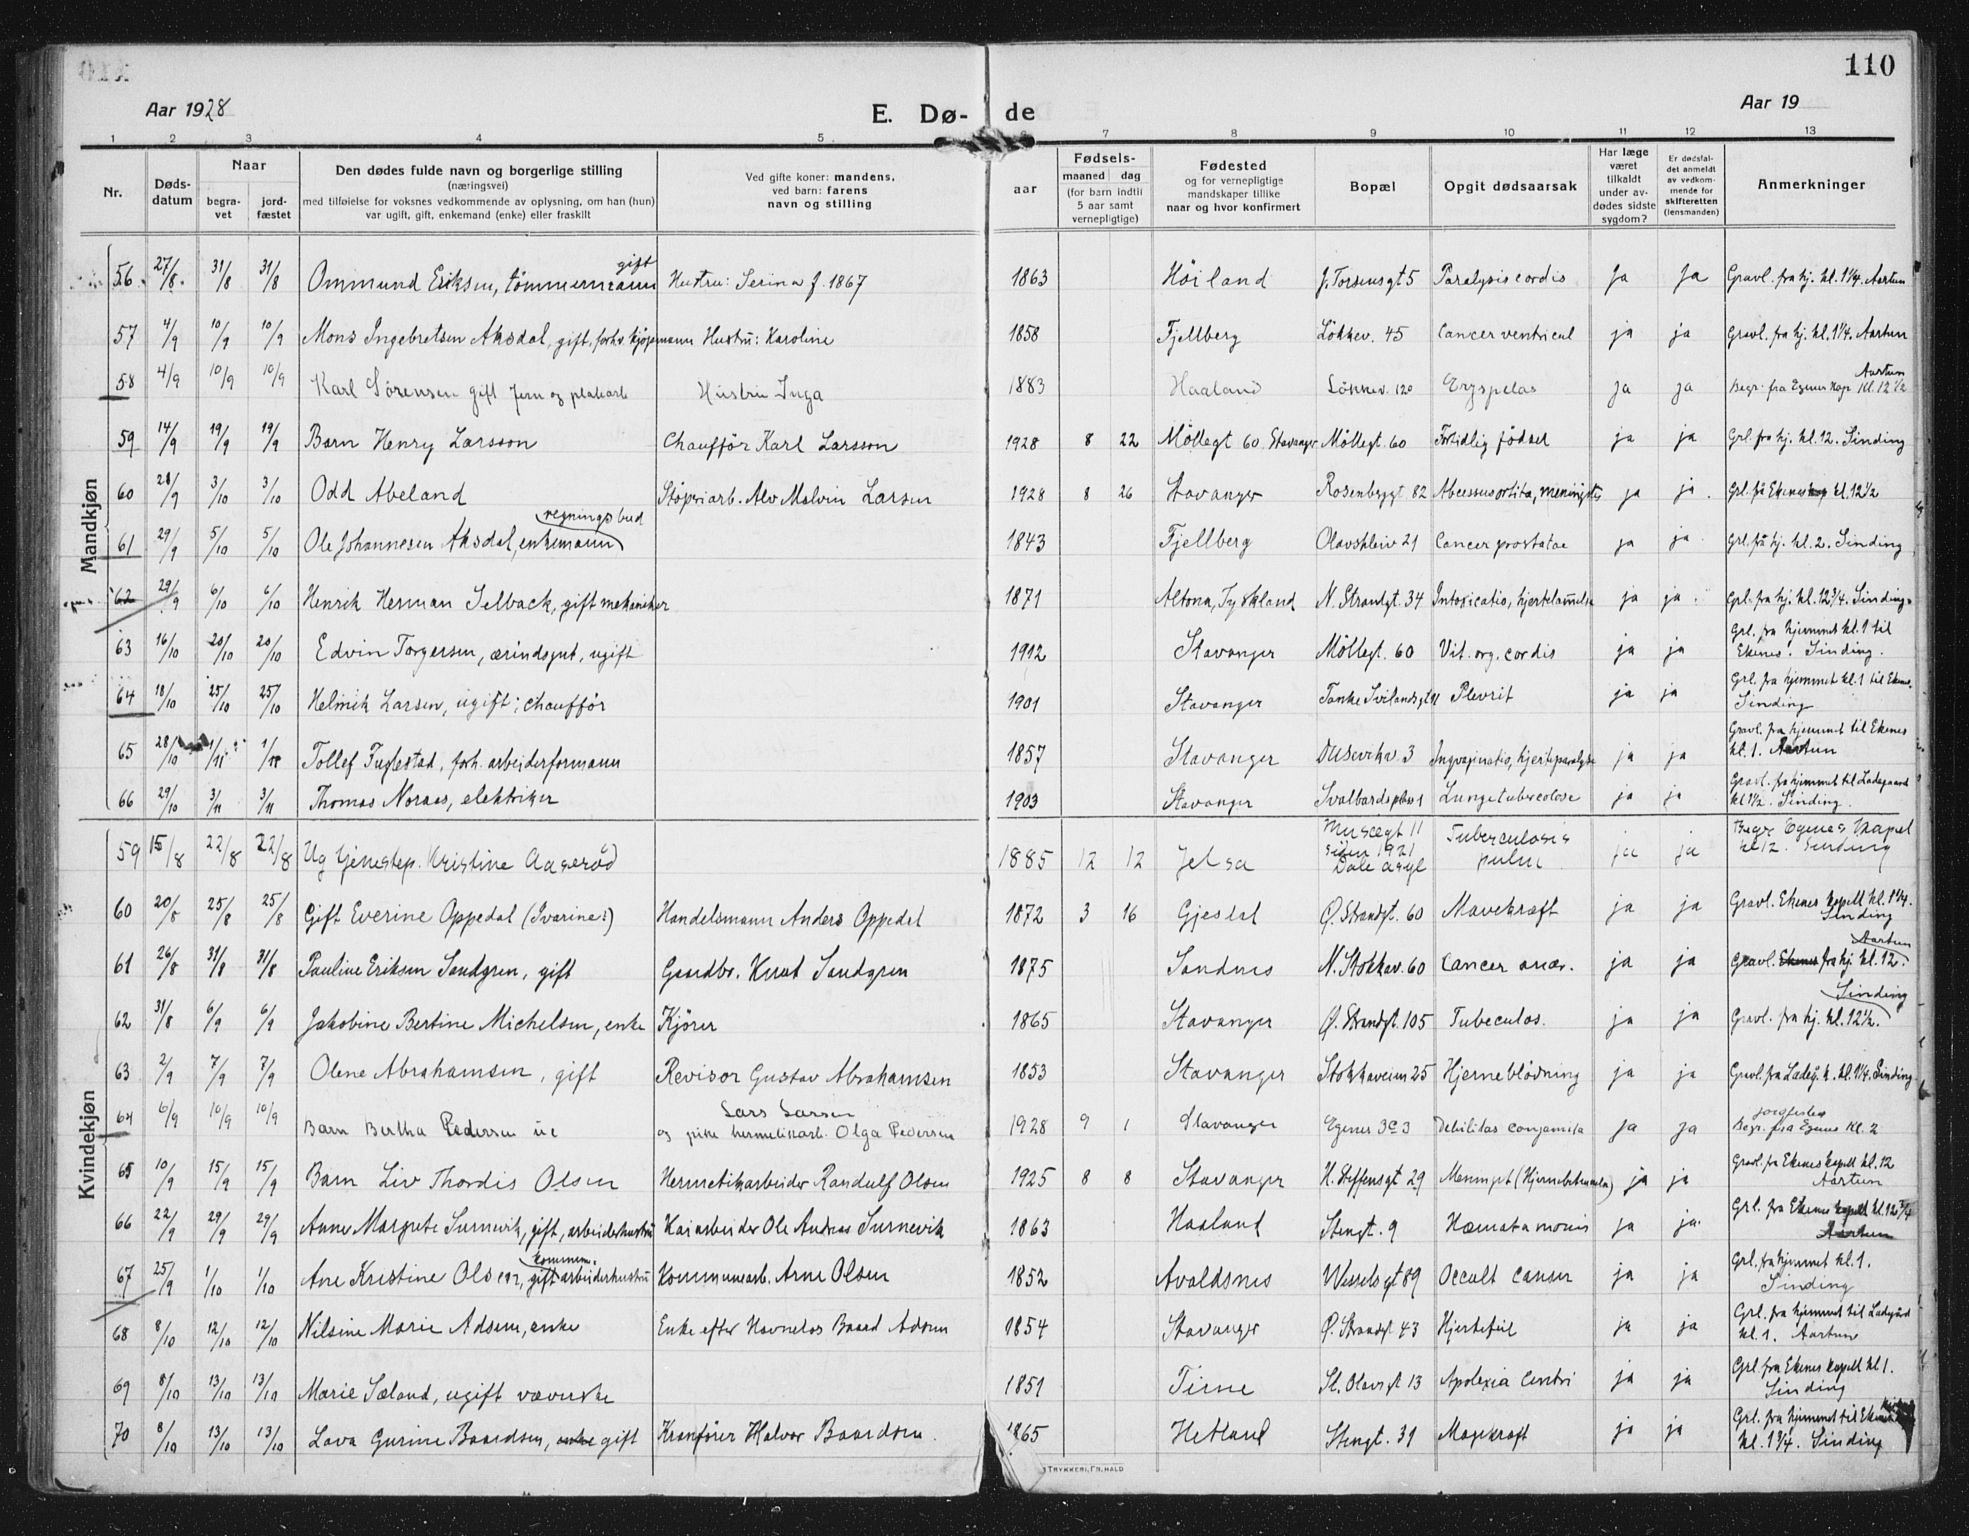 110
Aar 1928
E. Dø- de
Aar 19
1 2 3 4 5 7 8 9 10 11 12 13
Nr.
Døds-
datum
Naar
begra-
vet
jord-
fæstet
Den dødes fulde navn og borgerlige stilling
(næringsvei)
med tilføielse for voksnes vedkommende av oplysning, om han (hun)
var ugift, gift, enkemand (enke) eller fraskilt
Ved gifte koner: mandens,
ved barn: farens
navn og stilling
aar
Fødsels-
maaned dag
(for barn indtil
5 aar samt
vernepligtige)
Fødested
og for vernepligtige
mandskaper tillike
naar og hvor konfirmert
Bopæl
Opgit dødsaarsak
Har læge
været
tilkaldt
under av-
dødes sidste
sygdom?
Er dødsfal-
det anmeldt
av vedkom-
mende for
skifteretten
(lensmanden)
Anmerkninger
Mandkjøn
56. 27/8. 31/8 31/8 Ommund Eriksen, tömmermann gift Hustru: Serina f. 1867 1863 Höiland J. Torsensgt 5 Paralysis cordis Ja Ja Gravl. fra hj. kl. 1¼. Aartun
57 4/9 10/9 10/9 Mons Ingebretsen Aksdal, gift, forhv. kjøpmann Hustru: Karoline 1858 Fjellberg Lökkev. 45 Cancer ventricul ja ja Gravl. fra hj. kl. 1¼. Aartun
58 4/9 10/9 10/9 Karl Sörensen gift Jern og platearb Hustru Inga 1883 Haaland Lökkev. 120 Erysipelas ja ja Begr. fra Egenes Kap Kl. 12½ Aartun
59 14/9 19/9 19/9 Barn Henry Larsson Chaufför Karl Larsson 1928 8 22 Möllegt 60 Stavanger Möllegt. 60 Fortidlig födsel ja ja Grl. fra hj. kl. 12. Sinding
60 28/9 3/10 3/10 Odd Abeland Stöperiarb. Alv Malvin Larsen 1928 8 26 Stavanger Rosenbergt. 82 Abcessus ortita, meningites ja ja. Grl. på Ekenes kap kl. 12½
61 29/9 5/10 5/10 Ole Johannesen Aksdal, enkemann regningsbud 1843 Fjellberg Olavskleiv 21 Cancer prostatae ja ja Grl. fra hj. kl. 2. Sinding
62 29/9 6/10 6/10 Henrik Herman Selback, gift mekaniker 1871 Altona, Tyskland N. Strandgt. 34 Intoxicatio, hjertelamelse ja ja. Grl. fra hj. kl. 12¾. Sinding.
63 16/10 20/10 20/10 Edvin Torgersen, ærindsgut, ugift 1912 Stavanger Möllegt. 60 Vit. org. cordis ja ja Grl. fra hjemmet kl. 1 til
Ekenes. Sinding.
64 18/10 25/10 25/10 Helmik Larsen, ugift; chauffør 1901 Stavanger Tanke Svilandsgt Plevrit ja ja Grl. fra hjemmet kl. 1 til Ekenes.
Sinding
65 28/10 1/11 1/11 Tollef Fuglestad, forh. arbeiderformann 1857 Stavanger Dusevikv. 3 Ingvaginatio, hjerteparalyse ja ja Gravl. fra hjemmet til Ekenes
kl. 1. Aartun
66 29/10 3/11 3/11 Thomas Noraas, elektriker 1903 Stavanger Svalbardsplass 1 Lungetubercolose ja ja Gravl. fra hjemmet til Ladegaard
kl 1½. Sinding.
Kvindekjøn
59 15/8 22/8 22/8 Ug tjenestep. Kristine Aaseröd 1885 12 12 Jelsa Museegt 11
siden 1921
Dale asyl Tuberculosis
pulm ja ja Begr Egenes Kapel
kl 12. Sinding
60 20/8 25/8 25/8 Gift Everine Oppedal (Ivarine?) Handelsmann Anders Oppedal 1872 3 16 Gjestal Ø. Strandgt. 60 Mavekræft ja ja Gravl. Ekenes kapell kl. 1¼.
Sinding
61 26/8 31/8 31/8 Pauline Eriksen Sandgren, gift Gaardbr. Knut Sandgren 1875 Sandnes N. Stokkav. 60 Cancer ovar. ja ja Aartun
Gravl. Ekenes fra hj kl. 12.
62 31/8 6/9 6/9 Jakobine Bertine Michelsen, enke Kjörer 1865 Stavanger Ø. Strandgt. 105 Tubeculos. ja ja Sinding
Gravl. fra hj. kl. 12½.
63 2/9 7/9 7/9 Olene Abrahamsen, gift Revisor Gustav Abrahamsen 1853 Stavanger Stokkaveien 25 Hjerneblödning ja ja Gravl. fra Ladeg. k. kl. 1¼. Sinding
64 6/9 10/9 10/9 Barn Bertha Pedersen ue Lars Larsen
og pike hermetikarb. Olga Pedersen 1928 9 1 Stavanger Egenes 3c 3 Debilitas congamita ja ja jordfestes
Begr. fra Egenes Kl. 2
65 10/9 15/9 15/9 Barn Liv Thordis Olsen Hermetikarbeider Randulf Olsen 1925 8 8 Stavanger H. Steffensgt 29 Meningit (Hjernebetennelse) ja ja Gravl. fra Ekenes kapell kl. 12
Aartun
66 22/9 29/9 29/9 Anne Margrete Surnevik, gift, arbeiderhustru Kaiarbeider Ole Andreas Surnevik 1863 Haaland Stengt. 9 Hæmatamonis ja ja. Grl. fra Ekenes kapell kl. 12¾
Aartun
67 25/9 1/10 1/10 Ane Kristine Olsen, gift kommun. arbeiderhustru Kommunearb. Arne Olsen 1852 Avaldsnes Wesselsgt 89 Occult canser ja ja Grl. fra hjemmet kl. 1.
Sinding
68 8/10 12/10 12/10 Nilsine Marie Adsen, enke Enke efter Havnelos Baard Adsen 1854 Stavanger Ø. Strandgt 43 Hjertefeil ja ja Grl. fra hjemmet til Ladgård
kl. 1. Aartun
69 8/10 13/10 13/10 Marie Sæland, ugift væverske 1851 Time St. Olavsgt 13 Apolexia centri ja ja Grl. fra Ekenes kapell kl 1.
Sinding
70 8/10 13/10 13/10 Lava Gurine Baardsen, enke gift Kranförer Halvor Baardsen. 1865 Hetland Stengt. 31 Magekræft ja ja Grl. fra hjemmet til Ekenes
kl. 1¼. Sinding
TRYKKERI, FR. HALD